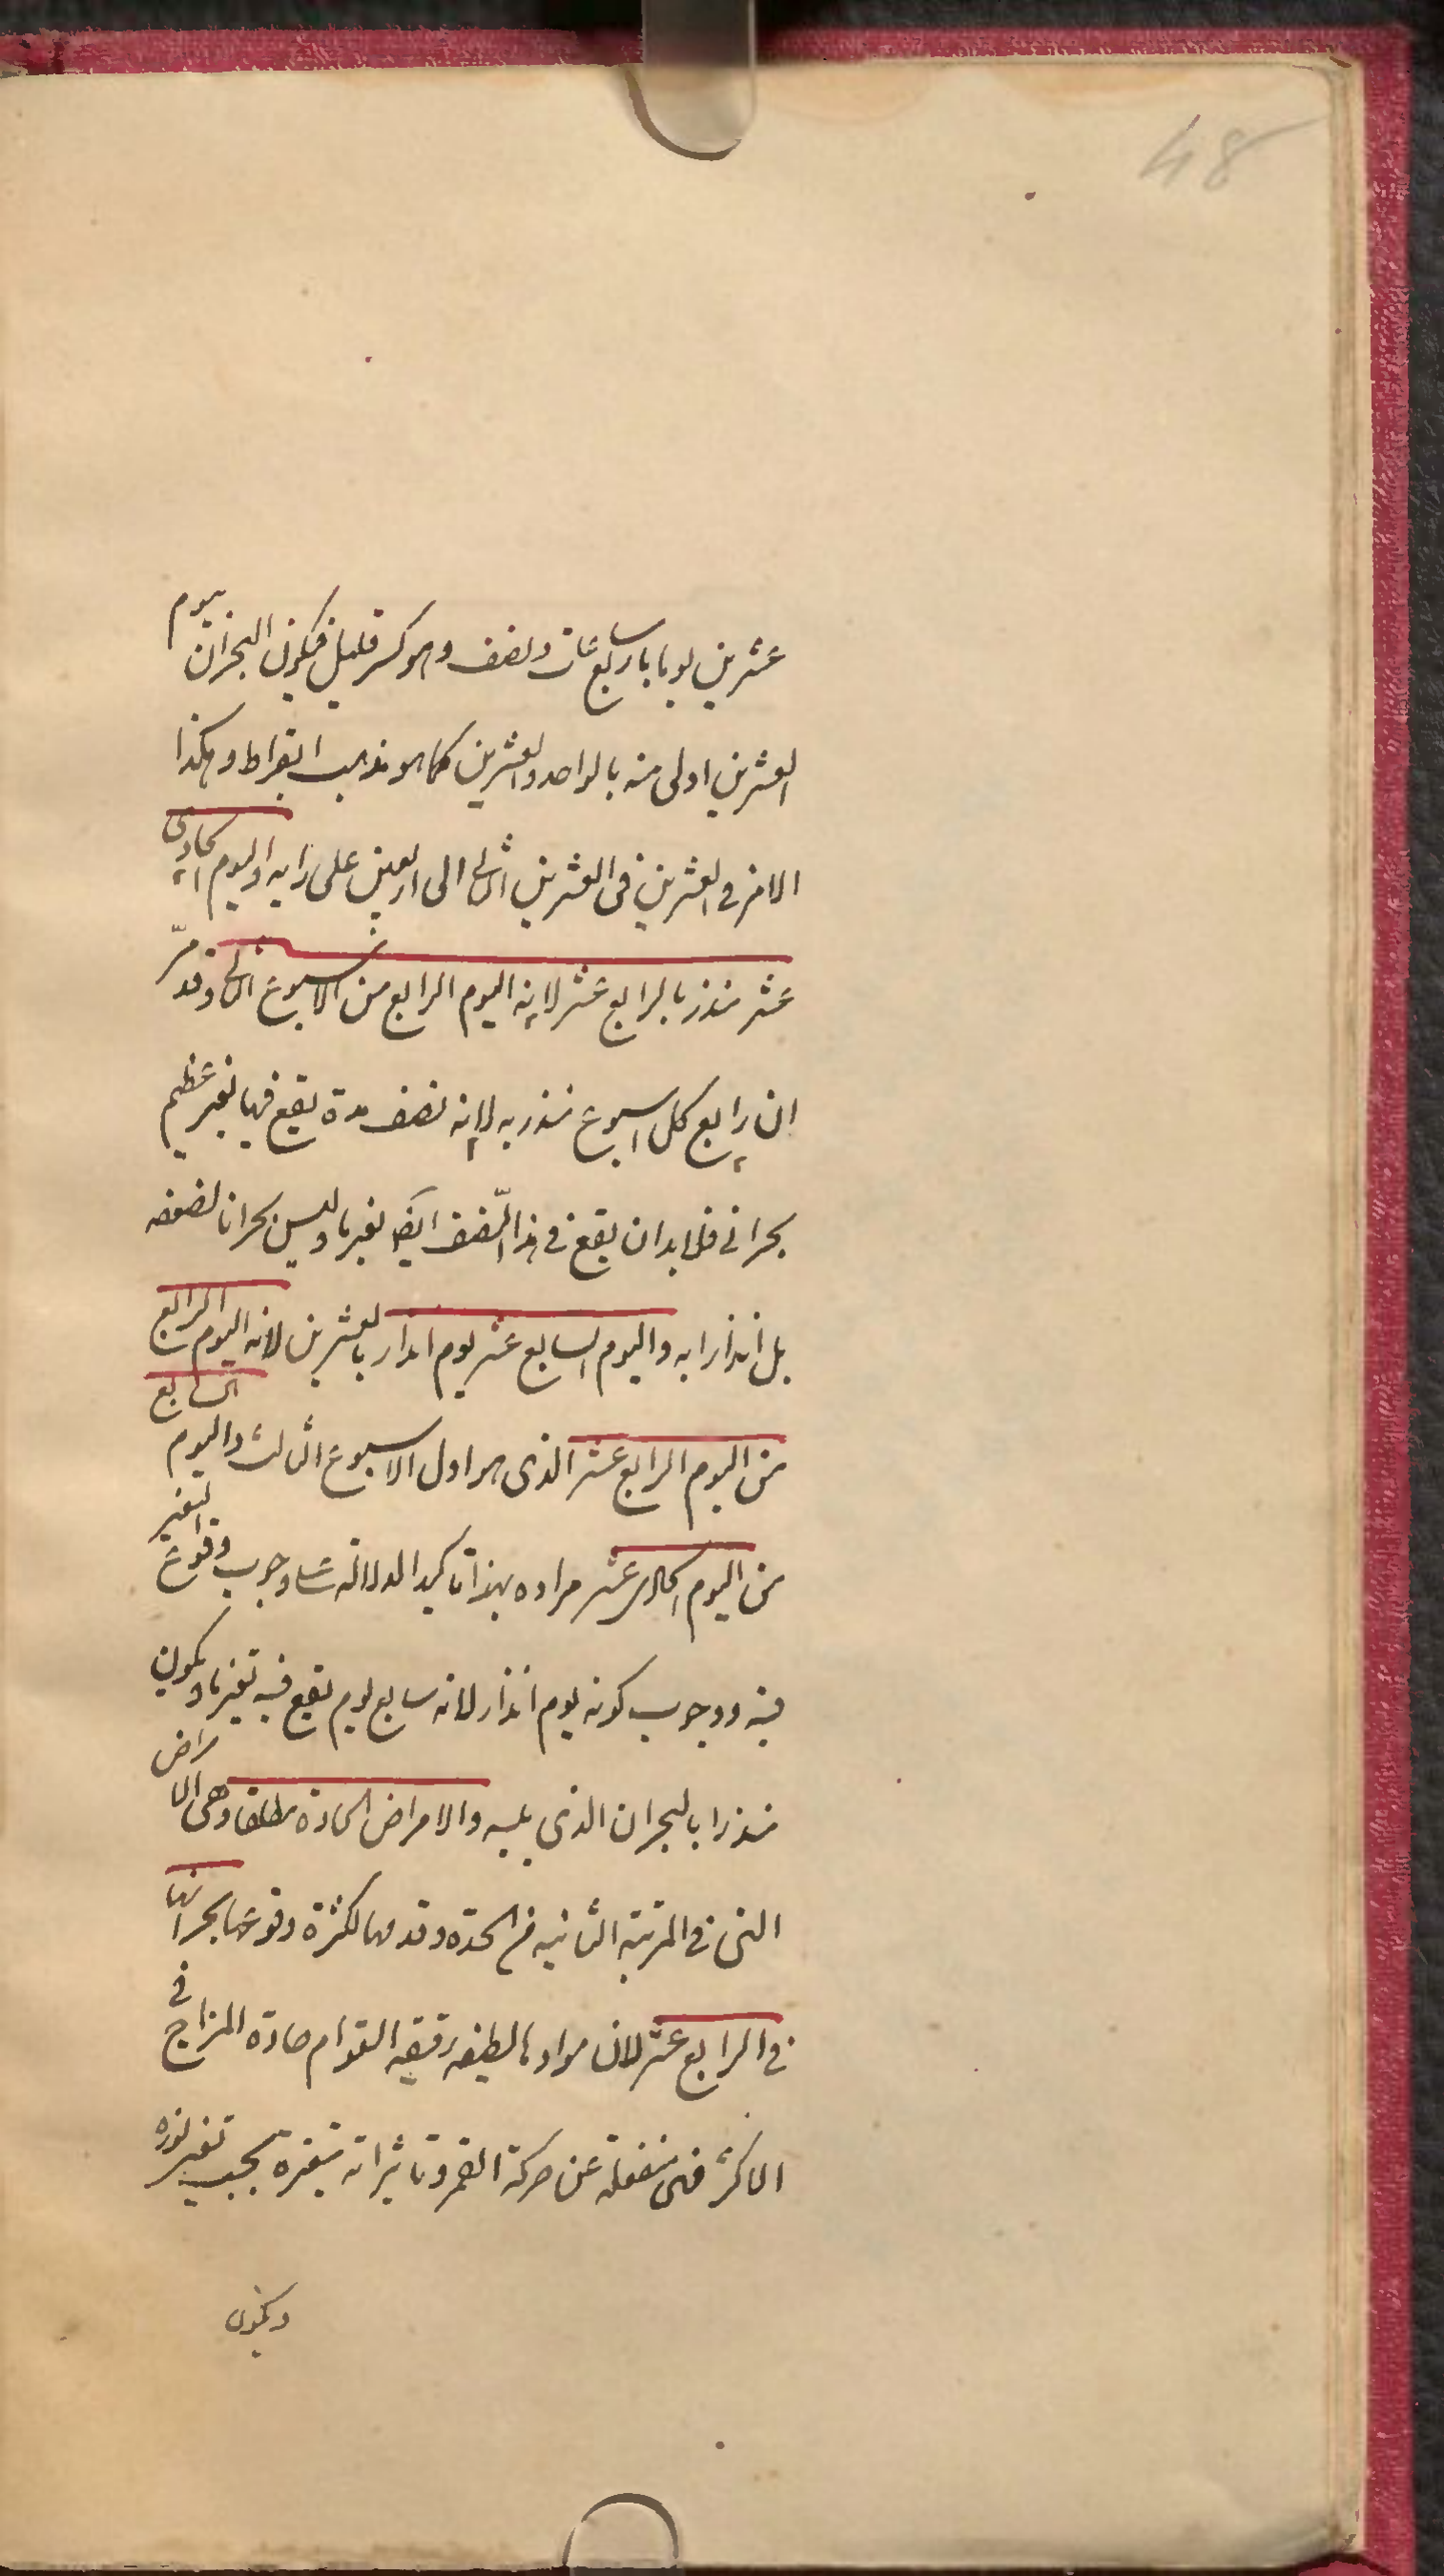 48
عشرين يوما باربع ساعات ونصف وهو كسر قليل فيكون البحران بيوم
العشرين اولى منه بالواحد والعشرين كما هو مذهب ابقراط وهكذا
الامر في العشرين في العشرين الثانى الى اربعين على رايه واليوم الحادى
عشر منذر بالرابع عشر لانه اليوم الرابع من الاسبوع الثانى وقد مرّ
ان رابع كل اسبوع منذر به لانه نصف مدة يقع فيها تغير عظيم
بحرانى فلا بد ان يقع في هذا النّصف ايضا تغير ما وليس بحرانا لضعفه
بل انذارا به واليوم السابع عشر يوم انذار بالعشرين لانه اليوم الرابع
من اليوم الرابع عشر الذى هو اول الاسبوع الثالث واليوم السابع
من اليوم الحادى عشر مراده بهذا تاكيد الدلالة على وجوب وقوع التغير
فيه ووجوب كونه يوم انذار لانه سابع يوم يقع فيه تغير ما ويكون
منذرا بالبحران الذى يليه والامراض الحادة مطلقا وهى الامراض
التى في المرتبة الثانيه من الحدة وقدمها لكثرة وقوعها بحرانها
في الرابع عشر لان موادها لطيفه رقيقه القوام حادة المزاج في
الاكثر فهى منفعلة عن حركة القمر وتاثيراته متغيرة بحسب تغير نوره
ويكون